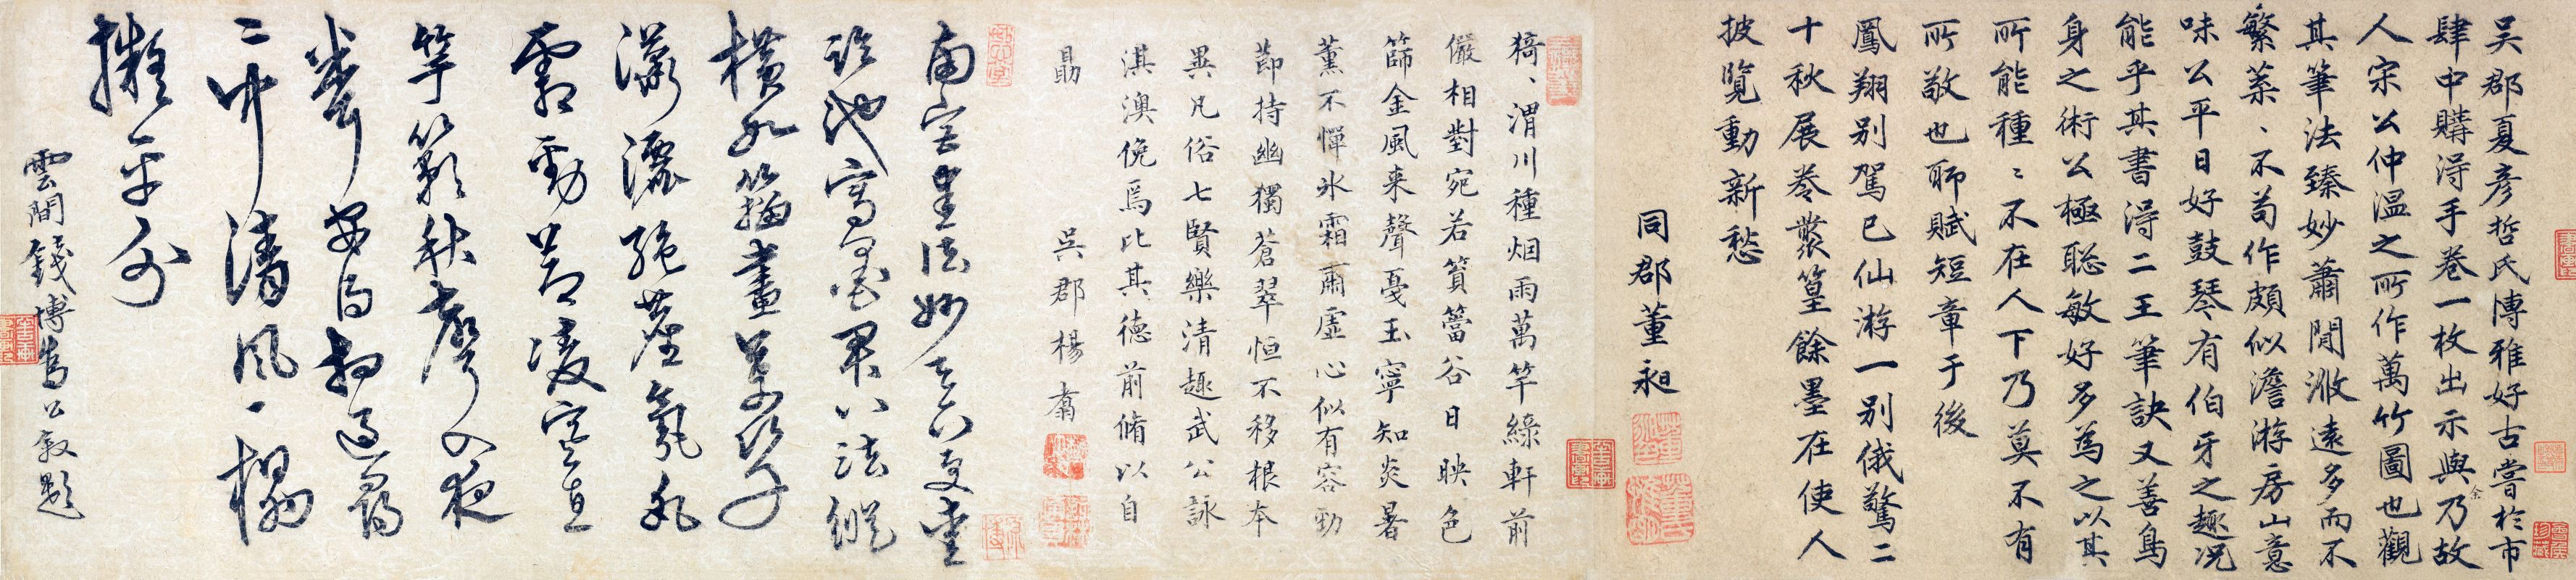 吴郡夏彦哲氏博雅好古嘗於市
肆中購淂手卷一枚出示與余乃故
人宋公仲温之所作萬竹圖也觀
其筆法臻妙蕭閒㴑遠多而不
繁蓁、不苟作頗似澹游房山意
味公平日好鼓琴有伯牙之趣况
能乎其書淂二王筆訣又善鳥
身之術公極聡敏好多為之以其
所能種〻不在人下乃莫不有
所敬也聊賦短章于後
鳳翔别駕已仙游一别俄驚二
十秋展卷叢篁餘墨在使人
披覧動新愁
同郡董昶
猗、渭川種烟雨萬竿綠軒前
儼相對宛若篔簹谷日映色
篩金風来聲戛玉寧知炎暑
薰不憚氷霜肅虚心似有容勁
莭持幽獨蒼翠恒不移根本
異凡俗七賢樂清趣武公詠
淇澳俛焉比其徳前脩以自
勗
吳郡楊翥
南宮書法妙天下更量
臨池寫墨君八法縱
橫如箍畫
瀟灑絶塵氛
霜勁節凌寒直
竿籟秋聲入夜
聞
二仲清風一榻
擬平分
雲間錢博為公敘題